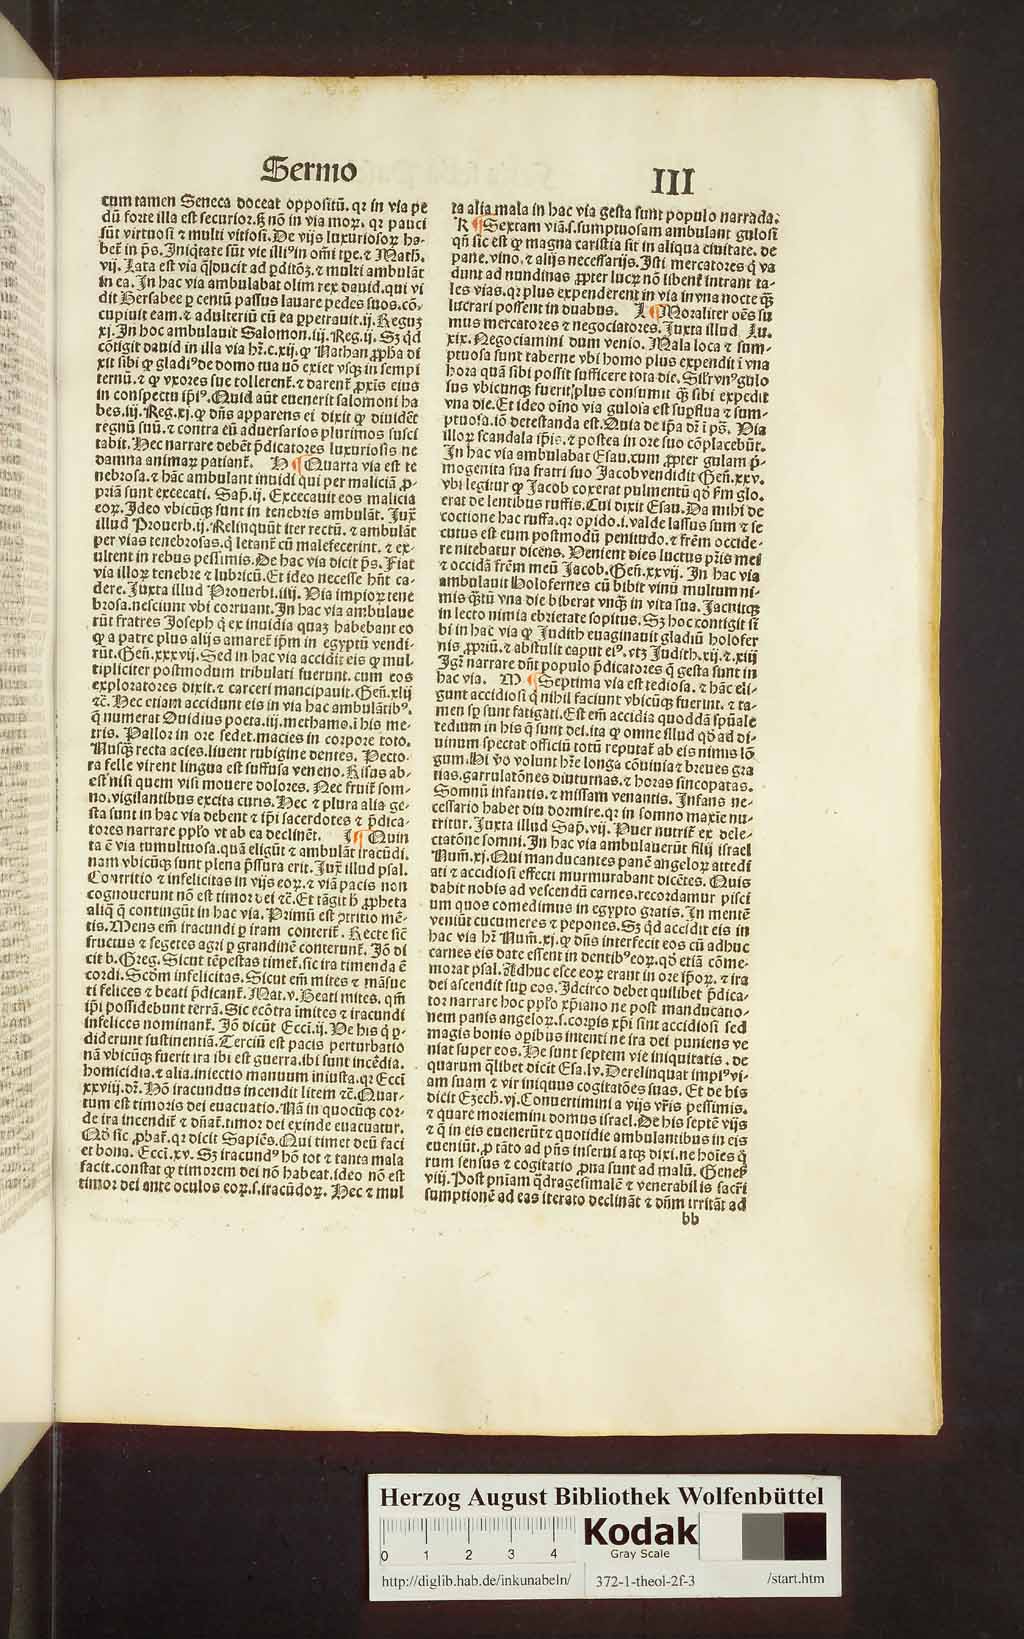 Sermo III
cum tamen Seneca doceat oppositū. qꝛ in via pe
dū forte illa est securior. ꝙ̄ nō in via moꝝ. qꝛ pauci
sūt virtuosi ⁊ multi vitiosi. De vijs luxuriosoꝝ ha-
betᷓ in p̄s. Iniq̄tate sūt vie illiꝰ in om̄i tp̄e. ⁊ Math.
vij. Lata est via q̄ ducit ad p̄ditōȝ. ⁊ multi ambulāt
in ea. In hac via ambulabat olim rex dauid. qui vi
dit Bersabee ꝑ centū passus lauare pedes suos. cō-
cupiuit eam. ⁊ adulteriū cū ea ꝑpetrauit. ij. Reguȝ
xj. In hoc ambulauit Salomon. iij. Reg. ij. Sȝ qd̄
cōtigit dauid in illa via hr̄. c. xij. ꝙ Nathan ꝓpha di
xit sibi ꝙ gladiꝰ de domo tua nō exiet vsqȝ in sempi
ternū. ⁊ ꝙ vxores sue tollerentᷓ. ⁊ darentᷓ ꝓxīs eius
in conspectu ip̄iꝰ. Quid aūt euenerit salomoni ha
bes. iij. Reg. xj. ꝙ dn̄s apparens ei dixit ꝙ diuidēt
regnū suū. ⁊ contra eū aduersarios plurimos susci
tabit. Hec narrare debēt p̄dicatores luxuriosis ne
damna animaꝝ patiantᷓ. H ¶ Quarta via est te
nebrosa. ⁊ hāc ambulant inuidi qui per maliciā ꝓ-
priā sunt excecati. Sap̄. ij. Excecauit eos malicia
eoꝝ. Ideo vbicūqȝ sunt in tenebris ambulāt. Iux̄
illud Prouerb. ij. Relinquūt iter rectū. ⁊ ambulāt
per vias tenebrosas. q̄ letantᷓ cū malefecerint. ⁊ ex-
ultent in rebus pessimis. De hac via dicit p̄s. Fiat
via illoꝝ tenebre ⁊ lubricū. Et ideo necesse hn̄t ca-
dere. Iuxta illud Prouerbi. iiij. Via impioꝝ tene
brosa. nesciunt vbi corruant. In hac via ambulaue
rūt fratres Joseph q̄ ex inuidia quaȝ habebant eo
ꝙ a patre plus alijs amaretᷓ ip̄m in egyptū vendi-
rūt. Gen̄. xxxvij. Sed in hac via accidit eis ꝙ mul
tipliciter postmodum tribulati fuerunt. cum eos
exploratores dixit. ⁊ carceri mancipauit. Gen̄. xlij
⁊c̄. Hec etiam accidunt eis in via hac ambulātibꝰ.
q̄ numerat Ouidius poeta. iij. methamo. ī his me-
tris. Pallor in ore sedet. macies in corpore toto.
Nusqȝ recta acies. liuent rubigine dentes. Pecto-
ra felle virent lingua est suffusa veneno. Risus ab-
est nisi quem visi mouere dolores. Nec fruitᷓ som-
no. vigilantibus excita curis. Hec ⁊ plura alia ge-
sta sunt in hac via debent ⁊ ip̄i sacerdotes ⁊ p̄dica-
tores narrare pp̄lo vt ab ea declinēt. I ¶ Quin
ta ē via tumultuosa. quā eligūt ⁊ ambulāt iracūdi.
nam vbicūqȝ sunt plena p̄ssura erit. Iux̄ illud psal.
Contritio ⁊ infelicitas in vijs eoꝝ. ⁊ viā pacis non
cognouerunt nō est timor dei ⁊c̄. Et tāgit h̄ ꝓpheta
aliq̄ q̄ contingūt in hac via. Primū est ꝯtritio mē-
tis. Mens em̄ iracundi ꝑ iram conteritᷓ. Recte sic̄
fructus ⁊ segetes agri ꝑ grandinē conteruntᷓ. Iō di
cit b. Greg. Sicut tēpestas timetᷓ. sic ira timenda ē
cordi. Scōm infelicitas. Sicut em̄ mites ⁊ māsue
ti felices ⁊ beati p̄dicantᷓ. Mat. v. Beati mites. qm̄
ip̄i possidebunt terrā. Sic ecōtra īmites ⁊ iracundi
infelices nominantᷓ. Iō dicūt Ecci. ij. Ve his q̄ ꝑ-
diderunt sustinentiā. Terciū est pacis perturbatio
nā vbicūqȝ fuerit ira ibi est guerra. ibi sunt incēdia.
homicidia. ⁊ alia. iniectio manuum iniusta. qꝛ Ecci
xxviij. dr̄. Hō iracundus incendit litem ⁊c̄. Quar-
tum est timoris dei euacuatio. Nā in quocūqȝ cor-
de ira incenditᷓ ⁊ dn̄atᷓ. timor dei exinde euacuatur.
Qd̄ sic ꝓbatᷓ. qꝛ dicit Sapiēs. Qui timet deū faci
et bona. Ecci. xv. Sȝ iracundꝰ hō tot ⁊ tanta mala
facit. constat ꝙ timorem dei nō habeat. ideo nō est
timor dei ante oculos eoꝝ. s. iracūdoꝝ. Hec ⁊ mul
ta alia mala in hac via gesta sunt populo narrāda.
K ¶ Sextam viā. s. sumptuosam ambulant gulosi
qn̄ sic est ꝙ magna caristia sit in aliqua ciuitate. de
pane. vino. ⁊ alijs necessarijs. Isti mercatores q̄ va
dunt ad nundinas ꝓpter lucꝝ nō libentᷓ intrant ta-
les vias. qꝛ plus expenderent in via in vna nocte qȝ
lucrari possent in duabus. L ¶ Moraliter oēs su
mus mercatores ⁊ negociatores. Iuxta illud Lu.
xix. Negociamini dum venio. Mala loca ⁊ sum-
ptuosa sunt taberne vbi homo plus expendit ī vna
hora quā sibi possit sufficere tota die. Sitᷓ vnꝰ gulo
sus vbicunqȝ fuerit plus consumit qȝ sibi expedit
vna die. Et ideo oīno via gulosa est suꝑflua ⁊ sum-
ptuosa. iō detestanda est. Quia de ip̄a dr̄ ī ps̄. Via
illoꝝ scandala ip̄is. ⁊ postea in ore suo cōplacebūt.
In hac via ambulabat Esau. cum ꝓpter gulam p̄-
mogenita sua fratri suo Jacob vendidit Gen̄. xxv.
vbi legitur ꝙ Jacob coxerat pulmentū qd̄ fm̄ glo.
erat de lentibus ruffis. Cui dixit Esau. Da mihi de
coctione hac ruffa. qꝛ opido. i. valde lassus sum ⁊ se
cutus est eum postmodū penitudo. ⁊ frēm occide-
re nitebatur dicens. Venient dies luctus pr̄is mei
⁊ occidā frēm meū Jacob. Gen̄. xxvij. In hac via
ambulauit Holofernes cū bibit vinū multum ni-
mis q̄tū vna die biberat vnqȝ in vita sua. Iacuitqȝ
in lecto nimia ebrietate sopitus. Sȝ hoc contigit si
bi in hac via ꝙ Judith euaginauit gladiū holofer
nis ꝓpriū. ⁊ abstulit caput eiꝰ. vtȝ Judith. xij. ⁊ xiij
Igr̄ narrare dn̄t populo p̄dicatores q̄ gesta sunt in
hac via. M ¶ Septima via est tediosa. ⁊ hāc eli-
gunt accidiosi q̄ nihil faciunt vbicūqȝ fuerint. ⁊ ta-
men sꝑ sunt fatigati. Est em̄ accidia quoddā sp̄uale
tedium in his q̄ sunt dei. ita ꝙ omne illud qd̄ ad di-
uinum spectat officiū totū reputatᷓ ab eis nimis lō
gum. Hi v̄o volunt hr̄e longa cōuiuia ⁊ breues gra
tias. garrulatōnes diuturnas. ⁊ horas sincopatas.
Somnū infantis. ⁊ missam venantis. Infans ne-
cessario habet diu dormire. qꝛ in somno maxīe nu-
tritur. Iuxta illud Sap̄. vij. Puer nutritᷓ ex dele-
ctatōne somni. In hac via ambulauerūt filij israel
Num̄. xj. Qui manducantes panē angeloꝝ attedi
ati ⁊ accidiosi effecti murmurabant dicētes. Quis
dabit nobis ad vescendū carnes. recordamur pisci
um quos comedimus in egypto gratis. In mentē
veniūt cucumeres ⁊ pepones. Sȝ qd̄ accidit eis in
hac via hr̄ Num̄. xj. ꝙ dn̄s interfecit eos cū adhuc
carnes eis date essent in dentibꝰ eoꝝ. qd̄ etiā cōme-
morat psal. Adhuc esce eoꝝ erant in ore ip̄oꝝ. ⁊ ira
dei ascendit suꝑ eos. Idcirco debet quilibet p̄dica-
tor narrare hoc pp̄lo xp̄iano ne post manducatio-
nem panis angeloꝝ. s. corꝑis xp̄i sint accidiosi sed
magis bonis oꝑibus intenti ne ira dei puniens ve
niat super eos. He sunt septem vie iniquitatis. de
quarum q̄libet dicit Esa. lv. Derelinquat impiꝰ vi-
am suam ⁊ vir iniquus cogitatōes suas. Et de his
dicit Ezech. vj. Conuertimini a vijs vr̄is pessimis.
⁊ quare moriemini domus israel. De his septē vijs
⁊ q̄ in eis euenerūt ⁊ quotidie ambulantibus in eis
eueniūt. ꝓ tāto ad pn̄s inserui atqȝ dixi. ne hoīes q̄
rum sensus ⁊ cogitatio ꝓna sunt ad malū. Genes̄
viij. Post pn̄iam q̄dragesimalē ⁊ venerabilis sacr̄i
sumptionē ad eas iterato declināt ⁊ dn̄m irritāt ad
bb
Herzog August Bibliothek Wolfenbüttel
0 1 2 3 4
Kodak
Gray Scale
http://diglib.hab.de/inkunabeln/ 372-1-theol-2f-3 /start.htm